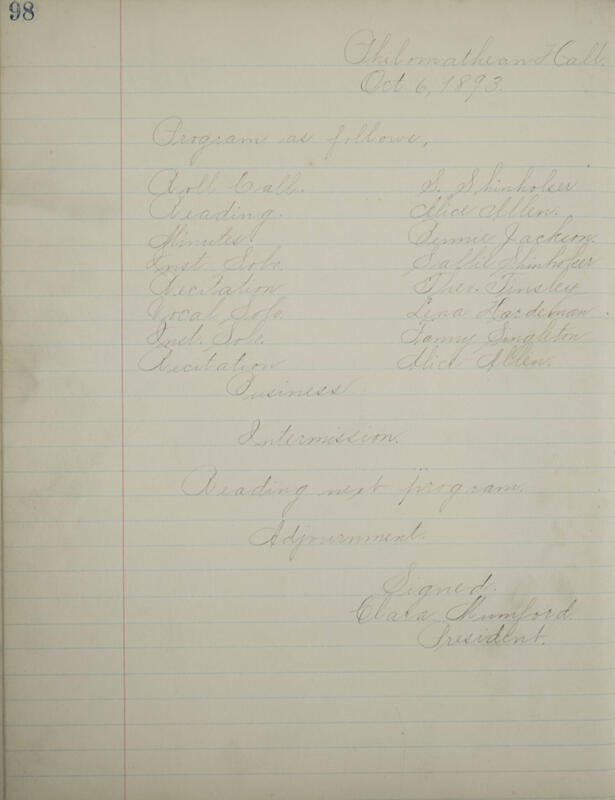 98
Philomathean Hall.
Oct 6, 1893.
Program as follows,
Roll Call. S. Shinholser
Reading. Alice Allen.
Minutes. Pennie Jackson.
Inst. Solo. Sallie Shinholser
Recitation Ther. Tinsley
Vocal Solo. Lena Hardeman.
Inst. Solo. Fanny Singleton
Recitation Alice Allen.
Business
Intermission.
Reading next program.
Adjournment.
Signed.
Clara Mumford
President.